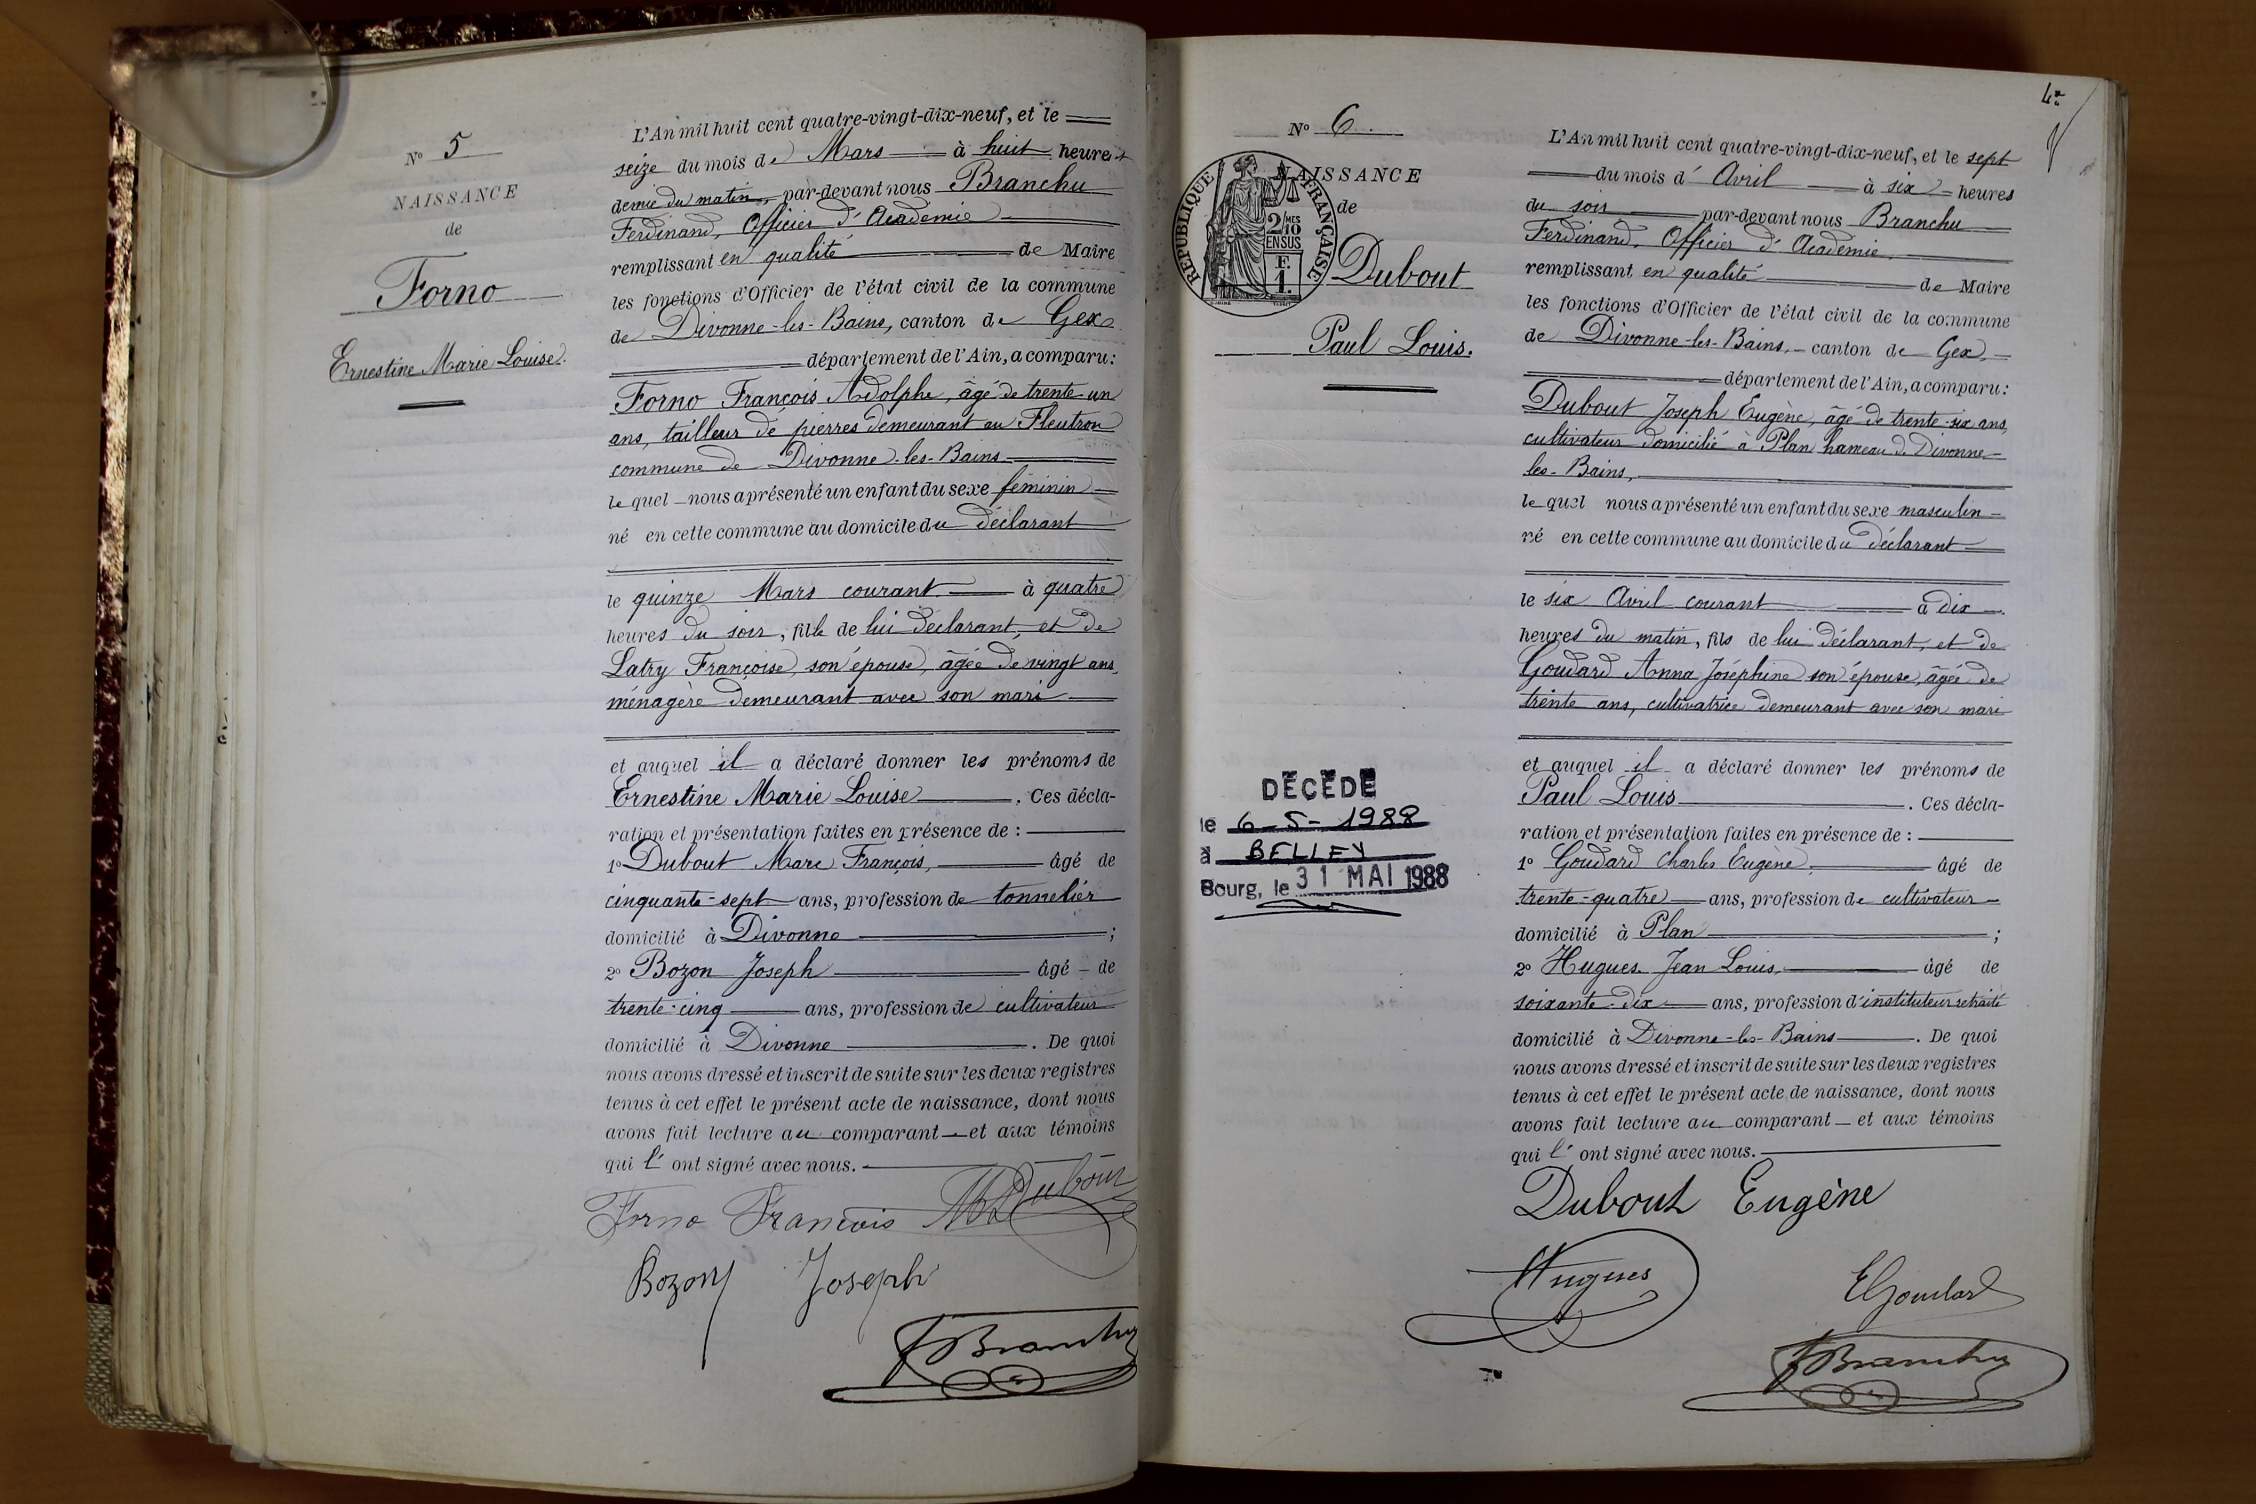 N° 5
NAISSANCE
de
Forno
Ernestine Marie Louise.
L'An mil huit cent quatre-vingt-dix-neuf, et le
seize du mois de Mars à huit heures
demie du matin, par-devant nous Branchu
Ferdinand, Officier d'Académie
remplissant en qualité de Maire
les fonctions d'Officier de l'état civil de la commune
de Divonne-les-Bains, canton de Gex
département de l'Ain, a comparu:
Forno François Adolphe, âgé de trente un
ans, tailleur de pierres demeurant au Fleutron
commune de Divonne-les-Bains
lequel nous a présenté un enfant du sexe féminin
né en cette commune au domicile du déclarant
le quinze Mars courant à quatre
heures du soir, fille de lui déclarant, et de
Latry Françoise, son épouse, âgée de vingt ans,
ménagère demeurant avec son mari
et auquel il a déclaré donner les prénoms de
Ernestine Marie Louise. Ces décla-
ration et présentation faites en présence de :
1° Dubout Marc François, âgé de
cinquante-sept ans, profession de tonnelier
domicilié à Divonne ;
2° Bozon Joseph âgé de
trente-cinq ans, profession de cultivateur
domicilié à Divonne. De quoi
nous avons dressé et inscrit de suite sur les deux registres
tenus à cet effet le présent acte de naissance, dont nous
avons fait lecture au comparant et aux témoins
qui l'ont signé avec nous.
Forno François Dubout
Bozon Joseph
F Branchu
4
N° 6
NAISSANCE
de
RÉPUBLIQUE FRANÇAISE
2/10
EN SUS
F.
1.
Dubout
Paul Louis.
DÉCÉDÉ
le 6-5-1988
à BELLEY
Bourg, le 31 MAI 1988
L'An mil huit cent quatre-vingt-dix-neuf, et le sept
du mois d'Avril à six heures
du soir par-devant nous Branchu
Ferdinand, Officier d'Académie
remplissant en qualité de Maire
les fonctions d'Officier de l'état civil de la commune
de Divonne-les-Bains, canton de Gex,
département de l'Ain, a comparu:
Dubout Joseph Eugène, âgé de trente-six ans,
cultivateur domicilié à Plan hameau de Divonne-
les-Bains,
lequel nous a présenté un enfant du sexe masculin
né en cette commune au domicile du déclarant
le six Avril courant à dix
heures du matin, fils de lui déclarant, et de
Goudard Anna Joséphine son épouse, âgée de
trente ans, cultivatrice demeurant avec son mari
et auquel il a déclaré donner les prénoms de
Paul Louis. Ces décla-
ration et présentation faites en présence de :
1° Goudard Charles Eugène, âgé de
trente-quatre ans, profession de cultivateur
domicilié à Plan ;
2° Hugues Jean Louis, âgé de
soixante-dix ans, profession d'instituteur retraité
domicilié à Divonne-les-Bains. De quoi
nous avons dressé et inscrit de suite sur les deux registres
tenus à cet effet le présent acte de naissance, dont nous
avons fait lecture au comparant et aux témoins
qui l'ont signé avec nous.
Dubout Eugène
Hugues
E Goudard
F Branchu